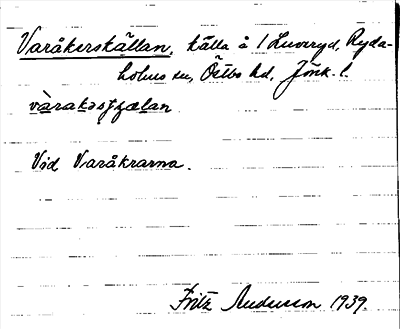 Varåkerskällan, källa å 1 Luveryd, Ryda-
holms sn, Östbo hd, Jönk. l.
Vid Varåkrarna.
Fritz Anderson 1939.